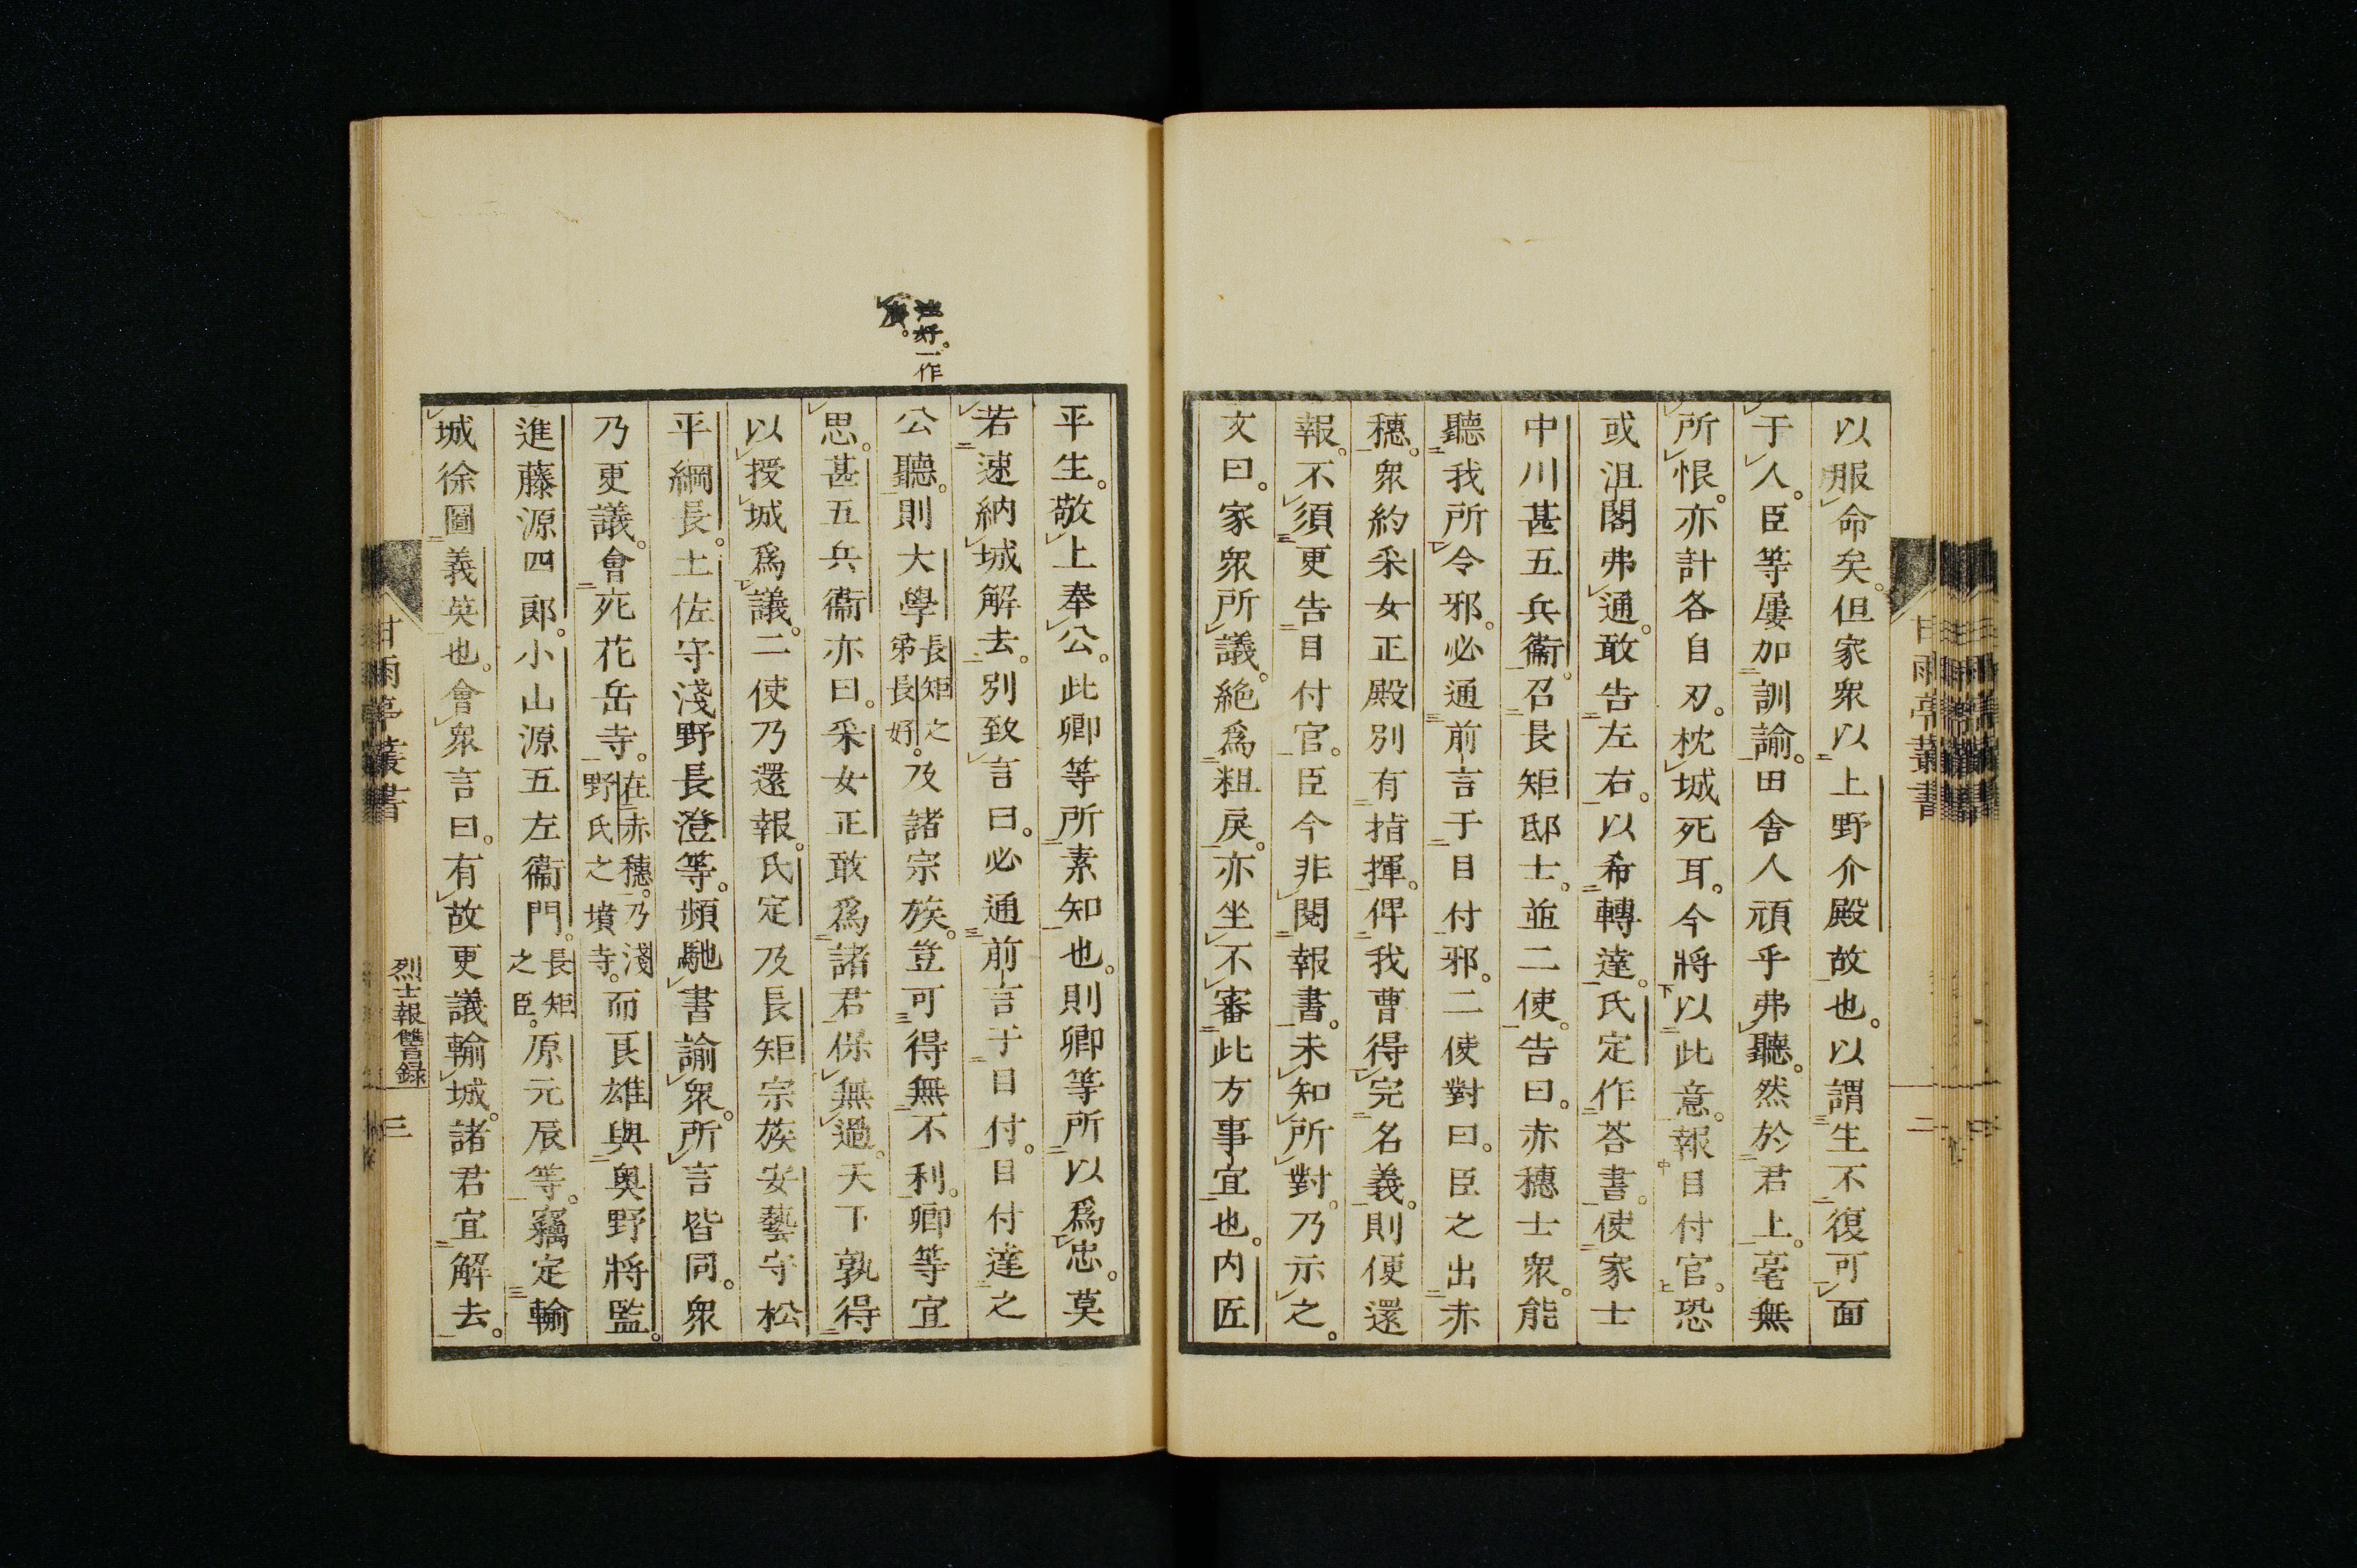 以服命矣。但家衆以上野介殿故也。以謂生不復可面
于人。臣等屢加訓諭。田舍人頑乎弗聽。然於君上。毫無
所恨。亦計各自刃。枕城死耳。今將以此意。報目付官。恐
或沮閣弗通。敢告左右。以希轉達。氏定作荅書。使家士
中川甚五兵衞。召長矩邸士。並二使。告曰。赤穗士衆。能
聽我所令邪。必通前言于目付邪。二使對曰。臣之出赤
穗。衆約采女正殿別有指揮。俾我曹得完名義。則便還
報。不須更告目付官。臣今非閱報書。未知所對。乃示之。
文曰。家衆所議。絶爲粗戾。亦坐不審此方事宜也。内匠
平生。敬上奉公。此卿等所素知也。則卿等所以爲忠。莫
若速納城解去。別致言曰。必通前言于目付。目付達之
公聽。則大學長矩之弟長好。及諸宗族。豈可得無不利。卿等宜
思。甚五兵衞亦曰。采女正敢爲諸君保無過。天下孰得
以授城爲議。二使乃還報。氏定及長矩宗族安藝守松
平綱長。土佐守淺野長澄等。頻馳書諭衆。所言皆同。衆
乃更議。會死花岳寺。在赤穗。乃淺野氏之墳寺。而良雄與奥野將監。
進藤源四郎。小山源五左衞門。長矩之臣。原元辰等。竊定輸
城徐圖義英也。會衆言曰。有故更議輸城。諸君宜解去。
好。一作
甘雨亭叢書
二
甘雨亭叢書
烈士報讐録
三